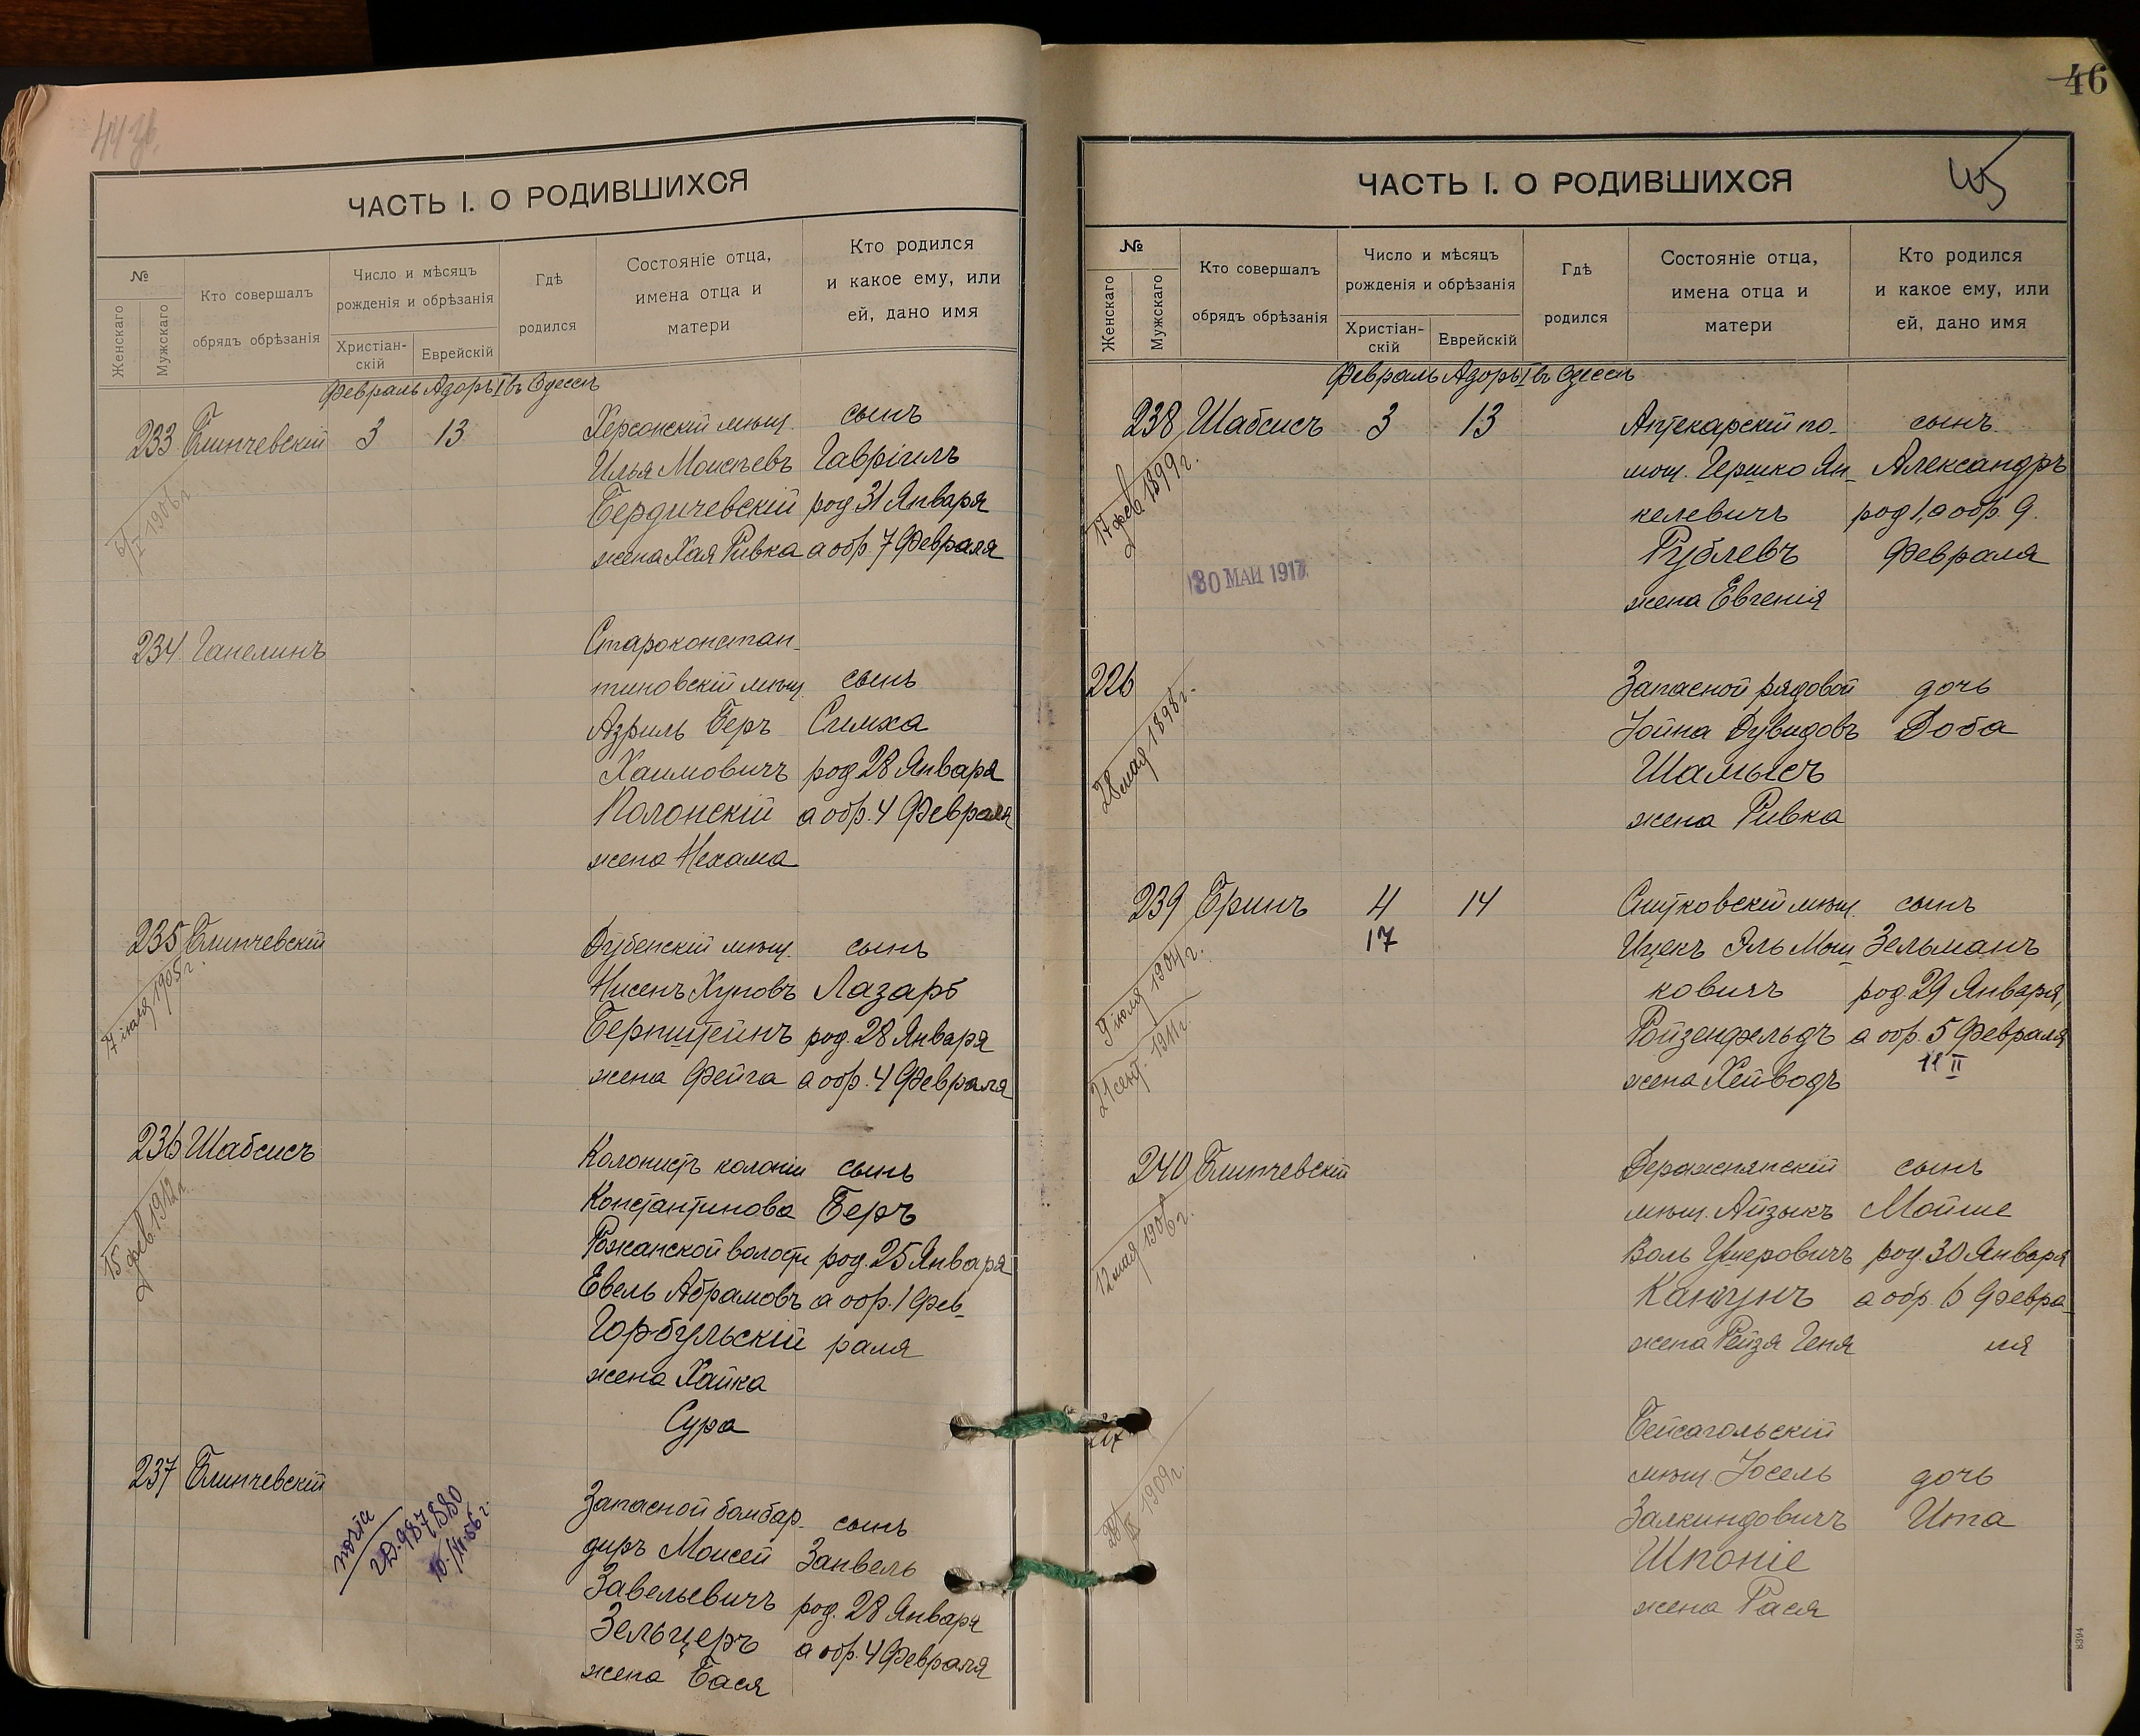 44 зв.
ЧАСТЬ I. О РОДИВШИХСЯ
№
Женскаго
Мужскаго
Кто совершалъ
обрядъ обрѣзанія
Число и мѣсяцъ
рожденія и обрѣзанія
Христіан-
скій
Еврейскій
Гдѣ
родился
Состояніе отца,
имена отца и
матери
Кто родился
и какое ему, или
ей, дано имя
Февраль Адоръ I въ Одессѣ
233 Блинчевскій 3 13 Херсонскій мѣщ. сынъ
Илья Моисѣевъ Гавріилъ
Бердичевскій род 31 Января
жена Хая Ривка а обр. 7 Февраля
1906 г.
234 Гапелинъ Староконстан-
тиновскій мѣщ. сынъ
Азриль Беръ Симха
Хаимовичъ род 28 Января
Полонскій а обр. 4 Февраля
жена Нехама
235 Блинчевскій Дубенскій мѣщ. сынъ
Нисенъ Хуновъ Лазарь
Бернштейнъ род. 28 Января
жена Фейга а обр. 4 Февраля
1905 г.
236 Шабсисъ Колонистъ колоніи сынъ
Константинова Беръ
Рожанской волости род. 25 Января
Евель Абрамовъ а обр. 1 Фев-
Горбульскій раля
жена Хайка
Сура
15 фев. 1912 г.
237 Блинчевскій Запасной бомбар- сынъ
диръ Моисей Занвель
Завельевичъ род. 28 Января
Зельцеръ а обр. 4 Февраля
жена Бася
46
45
ЧАСТЬ I. О РОДИВШИХСЯ
№
Женскаго
Мужскаго
Кто совершалъ
обрядъ обрѣзанія
Число и мѣсяцъ
рожденія и обрѣзанія
Христіан-
скій
Еврейскій
Гдѣ
родился
Состояніе отца,
имена отца и
матери
Кто родился
и какое ему, или
ей, дано имя
Февраль Адоръ I въ Одессѣ
238 Шабсисъ 3 13 Аптекарскій по- сынъ
мощ. Гершко Ян- Александръ
келевичъ род 1, а обр. 9.
Рублевъ Февраля
жена Евгенія
17 фев. 1899 г.
30 МАИ 1917
226 Запасной рядовой дочь
Іойна Дувидовъ Доба
Шамысъ
жена Ривка
28 мая 1898 г.
239 Бринъ 4 14 Снитковскій мѣщ. сынъ
17 Ицекъ Эль Мош- Зельманъ
ковичъ род. 29 Января,
Ройзенфельдъ а обр. 5 Февраля
жена Хейводъ 11 II
9 іюля 1904 г.
21 сент. 1911 г.
240 Блинчевскій Деражнянскій сынъ
мѣщ. Айзыкъ Мойше
Воль Ушеровичъ род. 30 Января
Канчунъ а обр. 6 Февра-
жена Рейзя Геня ля
12 мая 1906 г.
Бейсагольскій
мѣщ. Іосель дочь
Залкиндовичъ Ита
Шпоніе
жена Рася
1909 г.
8394